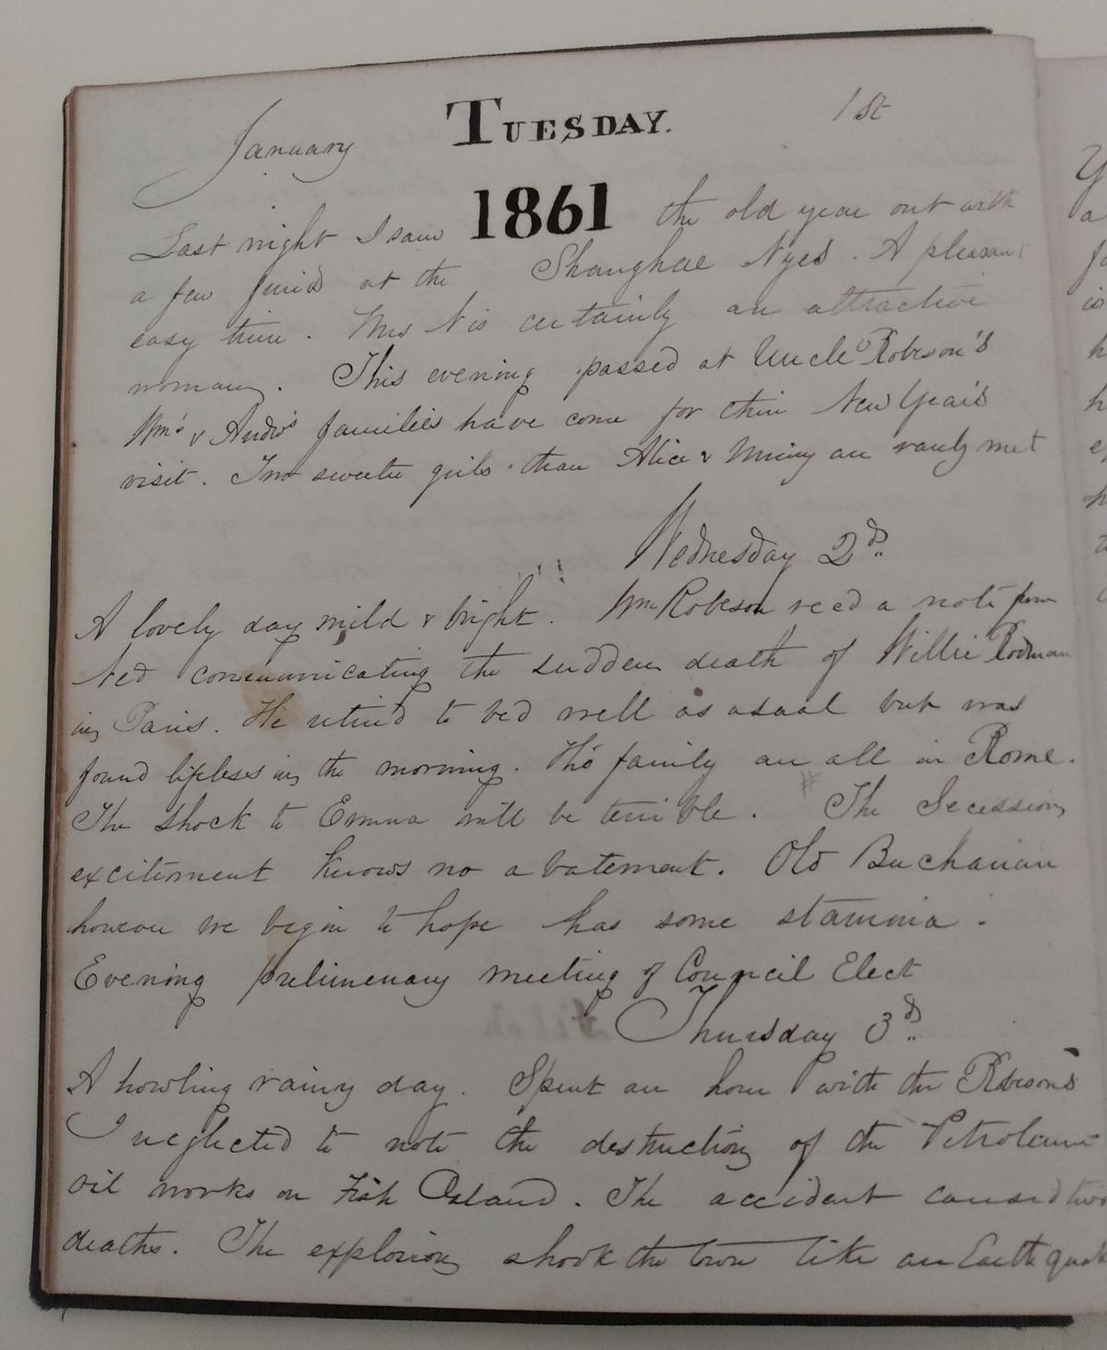 January TUESDAY. 1st
1861
Last night I saw the old year out with
a few friends at the Shanghae Nyes. A pleasant
easy time. Mrs N is certainly an attractive
woman. This evening passed at Uncle Robeson's
Wm's & Andw's families have come for their New Year's
visit. Two sweeter girls than Alice & Minny are rarely met
Wednesday 2d
A lovely day mild & bright. Wm Robeson rec'd a note from
Ned communicating the sudden death of Willie Rodman
in Paris. He retir'd to bed well as usual but was
found lifeless in the morning. The family are all in Rome.
The shock to Emma will be terrible. # The Secession
excitement knows no abatement. Old Buchanan
however we begin to hope has some stamina.
Evening prelimenary meeting of Council Elect
Thursday 3d
A howling rainy day. Spent an hour with the Robesons
I neglected to note the destruction of the Petroleum
oil works on Fish Island. The accident caused two
deaths. The explosion shook the town like an Earthquak